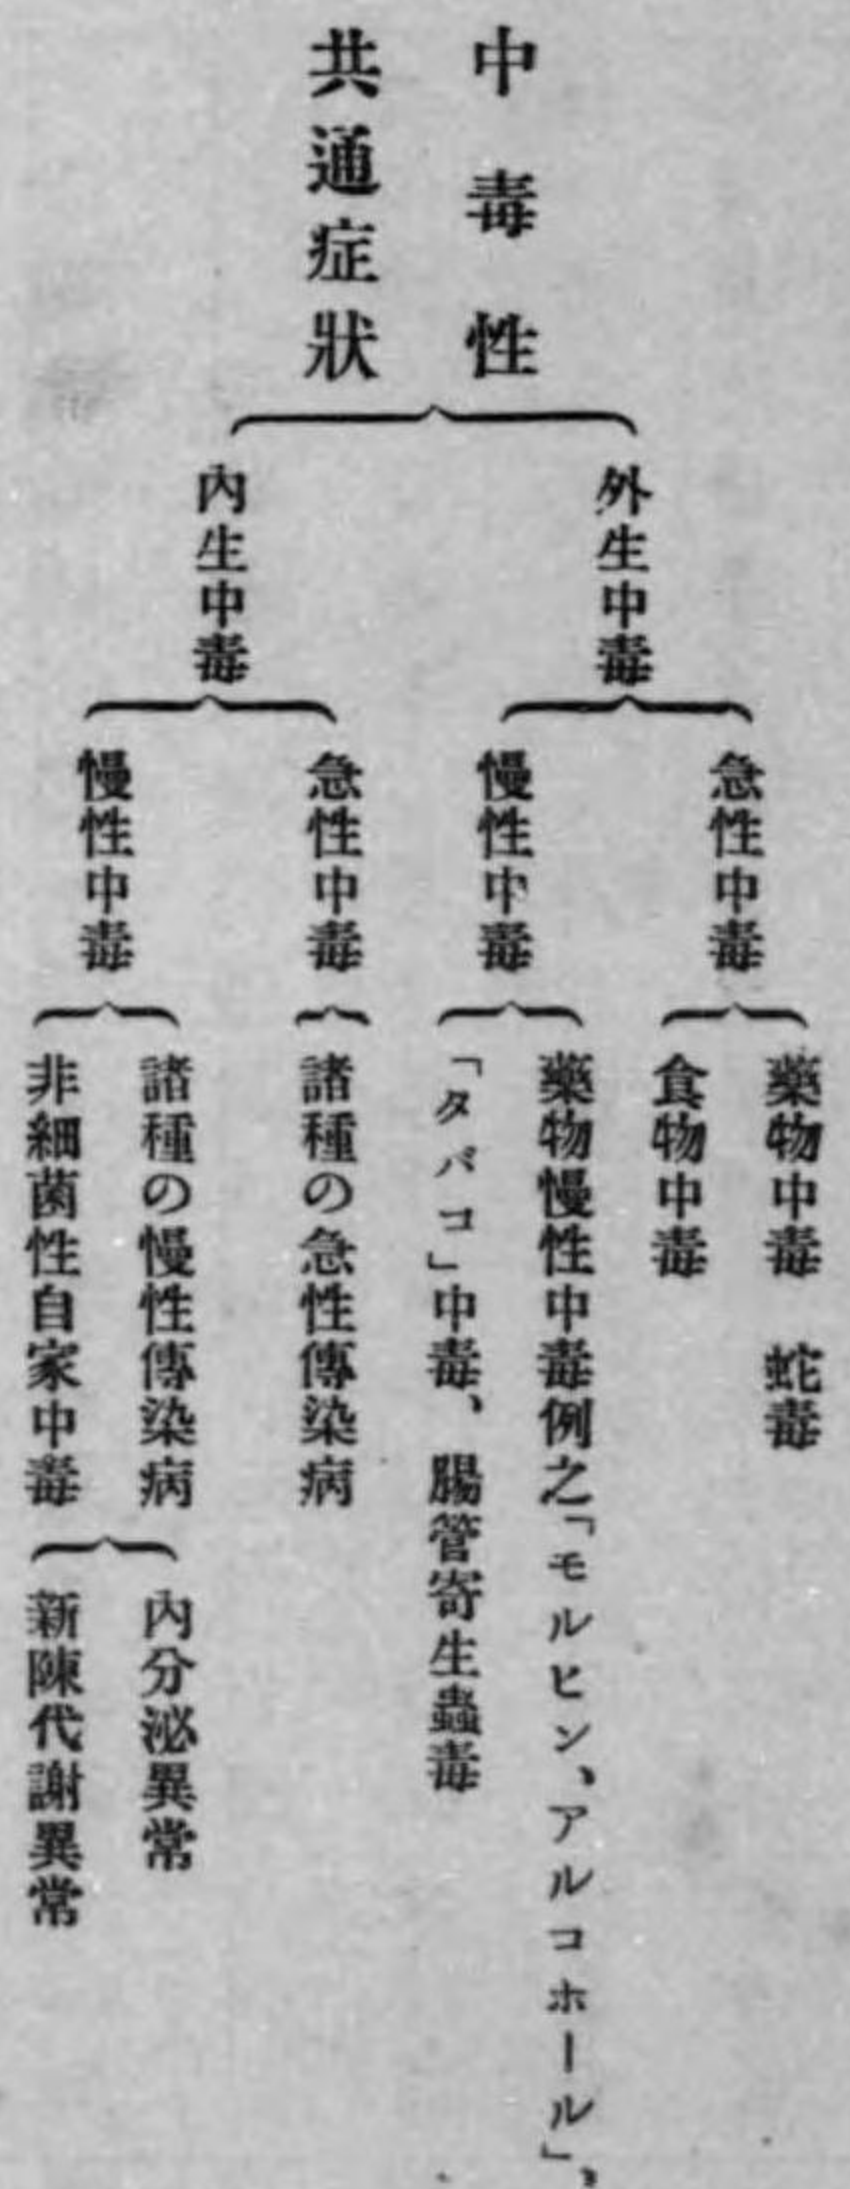 中毒性
共通症狀
外生中毒
急性中毒
藥物中毒　蛇毒
食物中毒
慢性中毒
藥物慢性中毒例之「モルヒン、アルコホール」、
「タバコ」中毒、腸管寄生蟲毒
內生中毒
急性中毒
諸種の急性傳染病
慢性中毒
諸種の慢性傳染病
非細菌性自家中毒
內分泌異常
新陳代謝異常